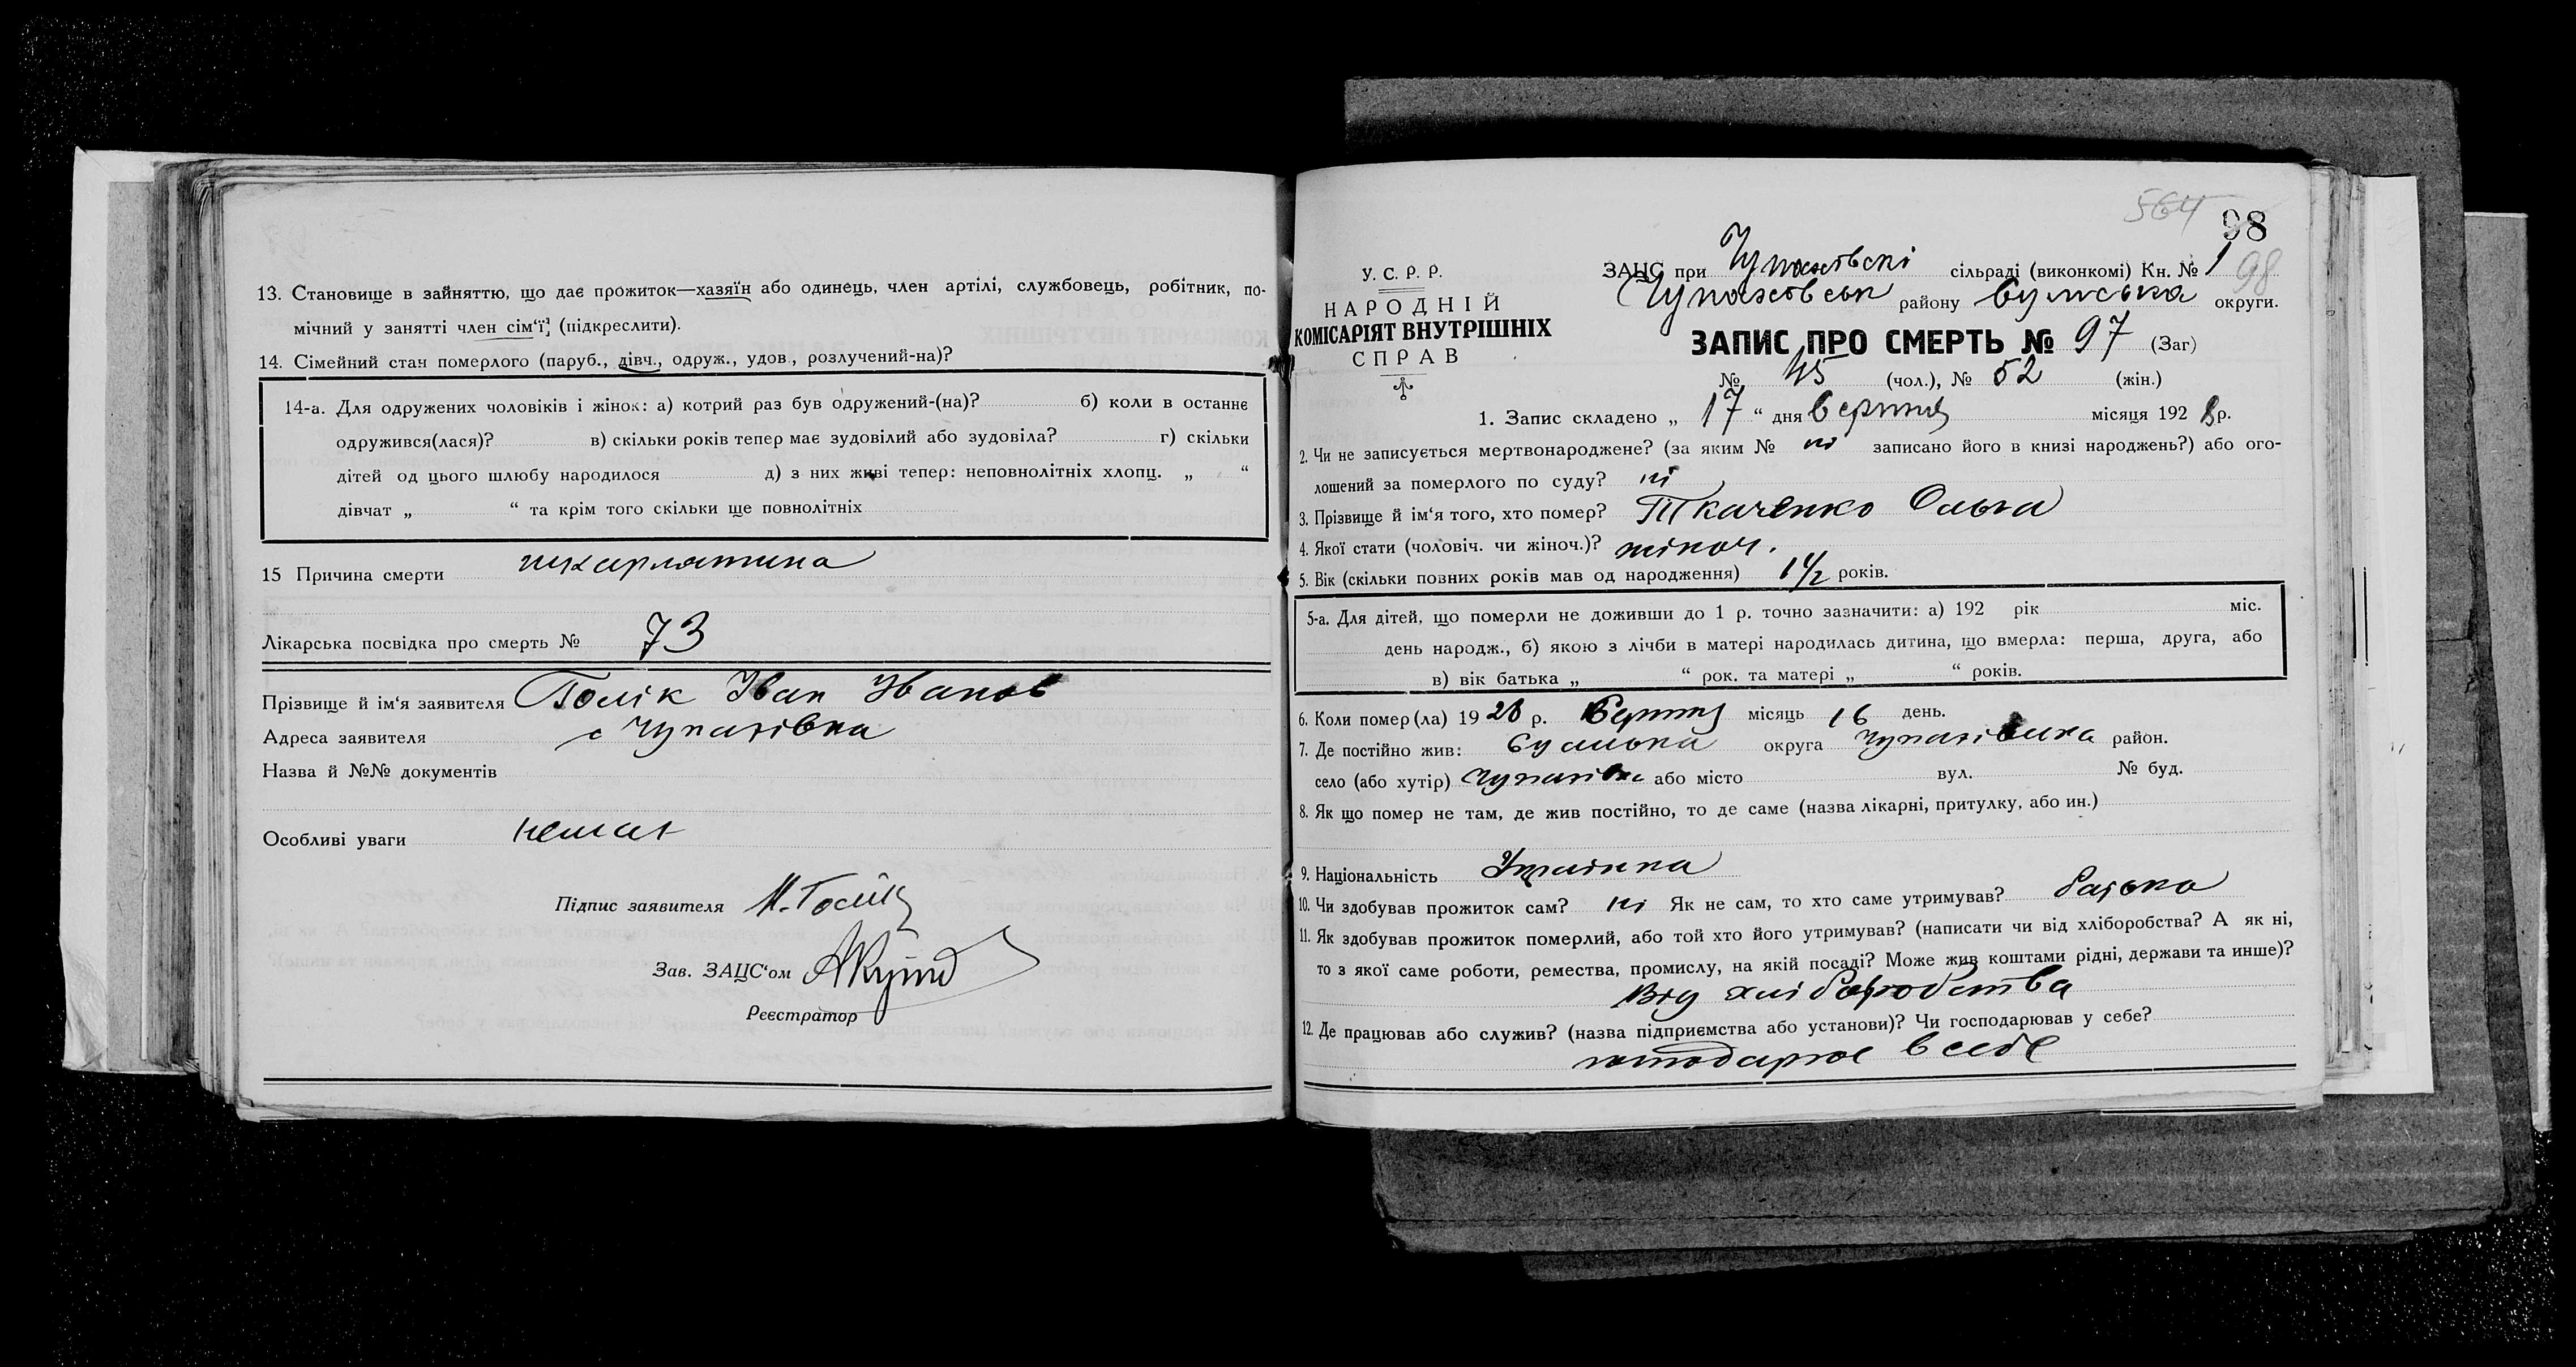 13. Становище в зайняттю, що дає прожиток—хазяїн або одинець, член артілі, службовець, робітник, по-
мічний у занятті член сім'ї, (підкреслити).
14. Сімейний стан померлого (паруб., дівч., одруж., удов., розлучений-на)?
14-а. Для одружених чоловіків і жінок: а) котрий раз був одружений-(на)? б) коли в останнє
одружився(лася)? в) скільки років тепер має зудовілий або зудовіла? г) скільки
дітей од цього шлюбу народилося д) з них живі тепер: неповнолітніх хлопц. „ “
дівчат „ “ та крім того скільки ще повнолітніх
15 Причина смерти шкарлятина
Лікарська посвідка про смерть № 73
Прізвище й ім'я заявителя Голік Іван Іванов
Адреса заявителя с Чупахівка
Назва й №№ документів
Особливі уваги немає
Підпис заявителя
Зав. ЗАЦС'ом
Реєстратор
564
98
У. С. Р. Р.
НАРОДНІЙ
КОМІСАРІЯТ ВНУТРІШНІХ
СПРАВ
ЗАЦС при Чупахівскі сільраді (виконкомі) Кн. № 1 98
Чупахівськ району Сумська округи.
ЗАПИС ПРО СМЕРТЬ № 97 (Заг)
№ 45 (чол.), № 52 (жін.)
1. Запис складено „ 17 “ дня вересня місяця 192 8 р.
2. Чи не записується мертвонароджене? (за яким № ні записано його в книзі народжень?) або ого-
лошений за померлого по суду? ні
3. Прізвище й ім'я того, хто помер? Ткаченко Ольга
4. Якої стати (чоловіч. чи жіноч.)? жіноч.
5. Вік (скільки повних років мав од народження) 1 1/2 років.
5-а. Для дітей, що померли не доживши до 1 р. точно зазначити: а) 192 рік міс.
день народж., б) якою з лічби в матері народилась дитина, що вмерла: перша, друга, або
в) вік батька „ “ рок. та матері „ “ років.
6. Коли помер(ла) 19 28 р. Вересня місяць 16 день.
7. Де постійно жив: Сумська округа Чупахівська район.
село (або хутір) Чупахівка або місто вул. № буд.
8. Як що помер не там, де жив постійно, то де саме (назва лікарні, притулку, або ин.)
9. Національність Українка
10. Чи здобував прожиток сам? ні Як не сам, то хто саме утримував? батько
11. Як здобував прожиток померлий, або той хто його утримував? (написати чи від хліборобства? А як ні,
то з якої саме роботи, ремества, промислу, на якій посаді? Може жив коштами рідні, держави та инше)?
від хліборобства
12. Де працював або служив? (назва підприємства або установи)? Чи господарював у себе?
господарює в себе